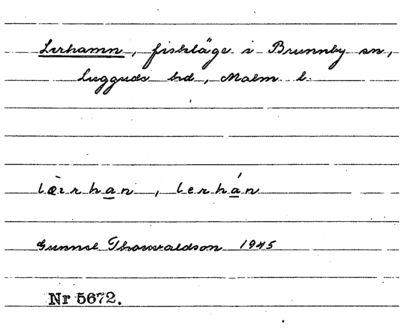 Lerhamn, fiskläge i Brunnby sn,
Luggude hd, Malm. l.
læ̀i r h a n , l e r h á n
Gunnel Thorvaldson 1945
Nr 5672.